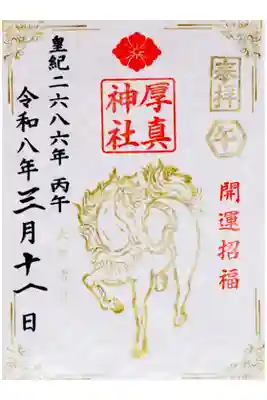 奉拝
午
開運招福
厚真
神社
皇紀二六八六年 丙午
令和八年三月十八日